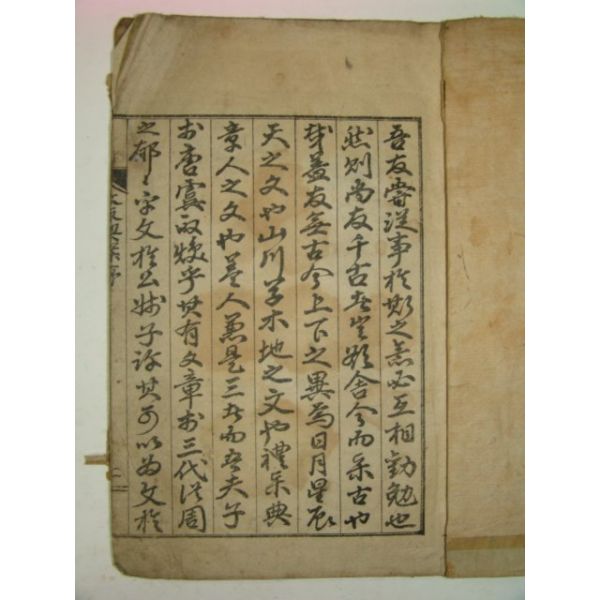 吾友嘗從事於斯之意必互相勸勉也
然則尚友千古者豈歇舍今而求古也
哉蓋友無古今上下之異為日月星辰
天之文也山川草木地之文也禮樂典
章人之文也蓋人兼是三者而吾夫子
於唐虞而煥乎其有文章於三代從周
之郁〻乎文於公
子許其可以為文於
序
二